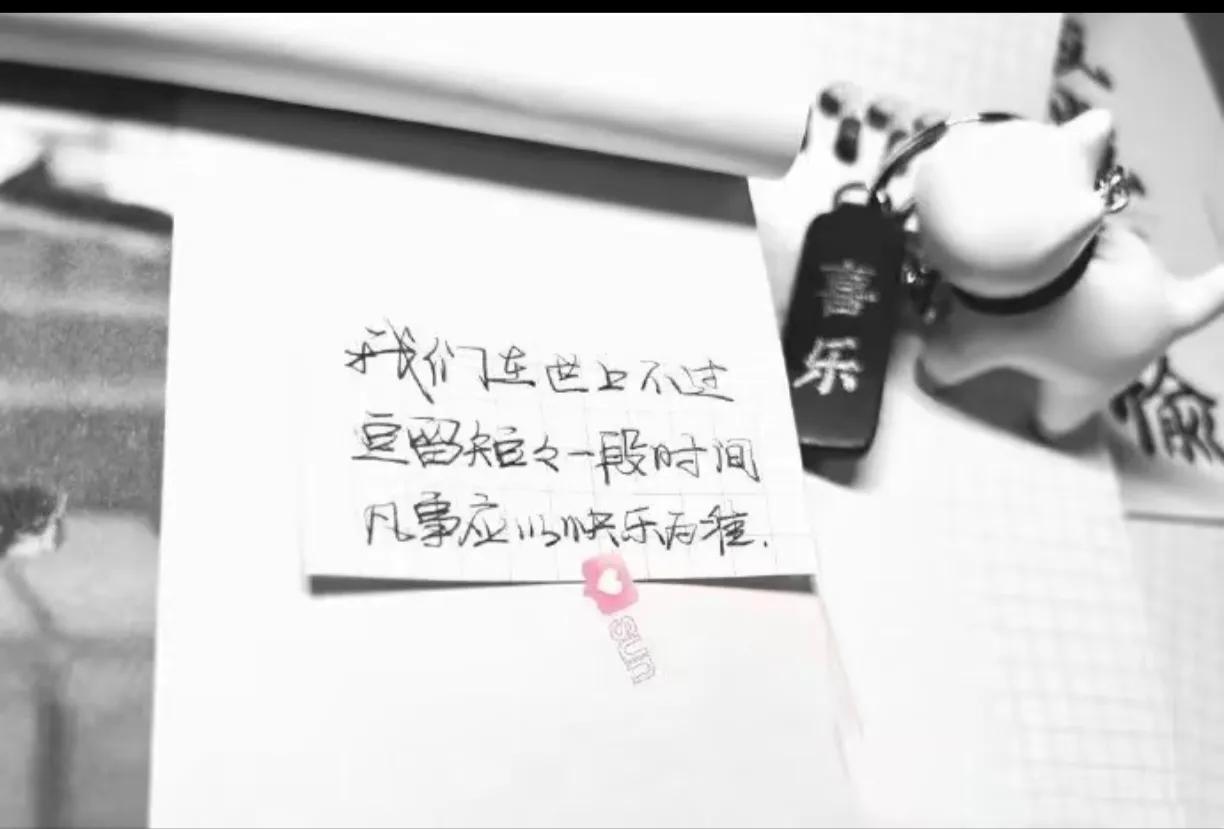 我们在世上不过
逗留短々一段时间
凡事应以快乐为准.
喜
乐
sun
偷